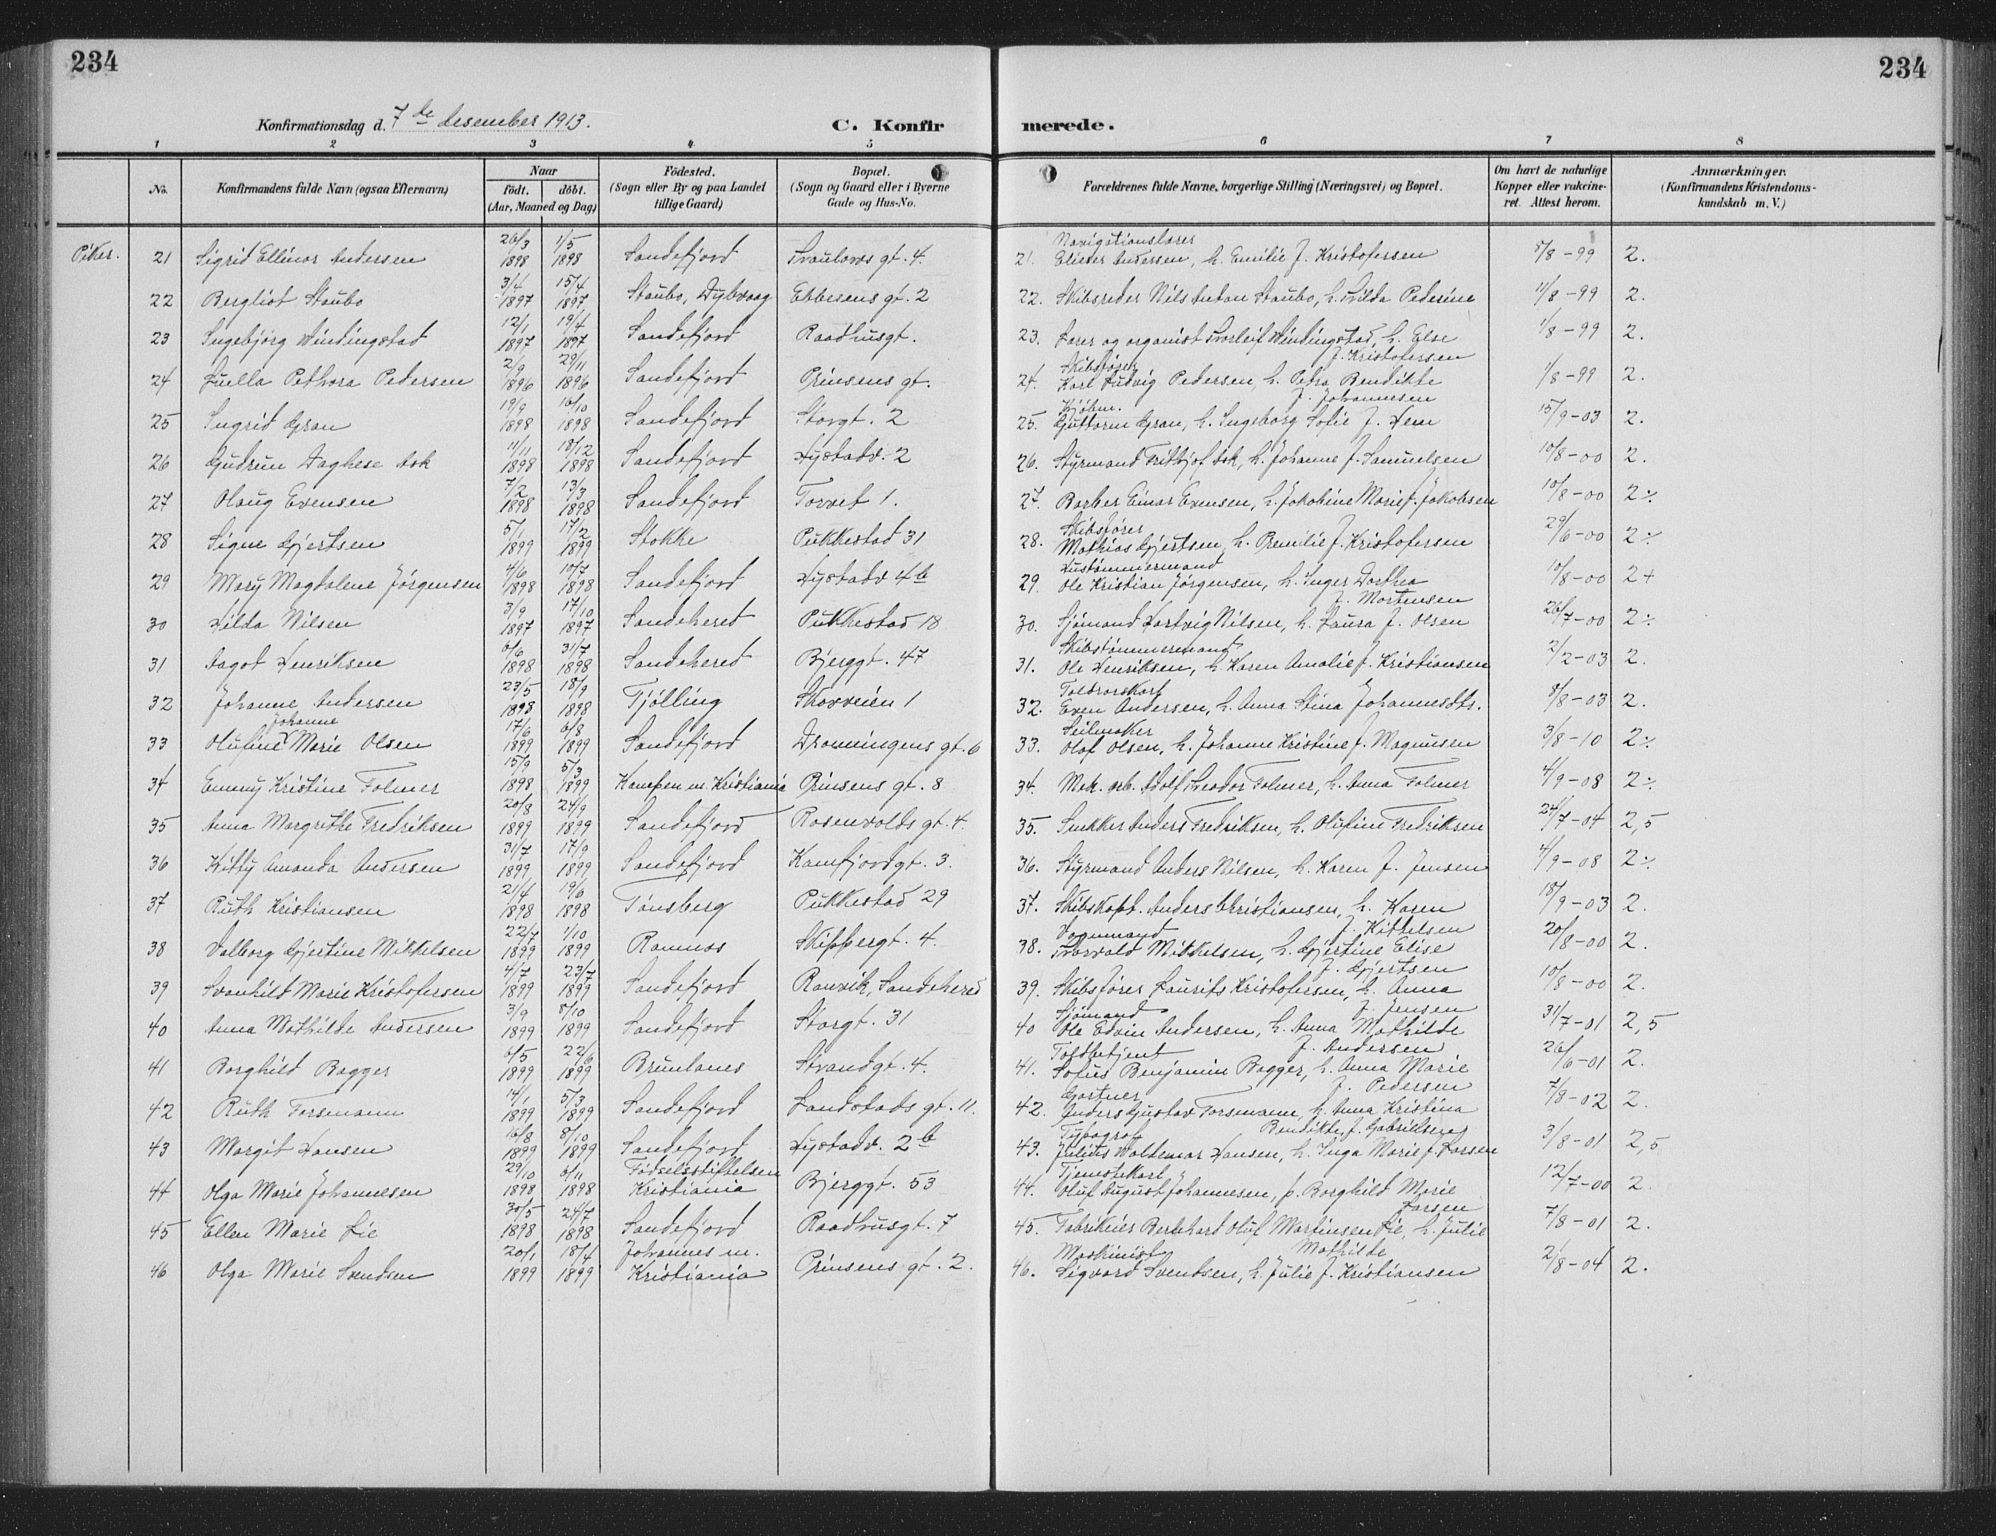 234
234
Konfirmationsdag d. 7de desember 1913.
C. Konfirmerede.
1 2 3 4 5 6 7 8
No. Konfirmandens fulde Navn (ogsaa Efternavn) Naar født. døbt. (Aar, Maaned og Dag) Fødested. (Sogn eller By og paa Landet tillige Gaard) Bopæl. (Sogn og Gaard eller i Byerne Gade og Hus-No. Forældrenes fulde Navne, borgerlige Stilling (Næringsvei) og Bopæl. Om havt de naturlige Kopper eller vakcineret. Attest herom. Anmærkninger. (Konfirmandens Kristendomskundskab m. V.)
Piker. 21 Sigrid Ellinor Andersen 26/3 1898 1/5 1898 Sandefjord gt. 4. 21. Navigationslærer Andersen, h. Emilie f. Kristofersen 5/8-99 2.
22 Bergliot Staubo 3/4 1897 15/4 1897 Staubo, Dybvaag Ebbesens gt. 2 22. Skibsreder Nils Anton Staubo, h. Hilda Pederine 11/8-99 2.
23 Ingebjørg Windingstad 12/1 1897 19/4 1897 Sandefjord Raadhusgt. 23. Lærer og organist Thorleif Windingstad, h. Else f. Kristofersen 1/8-99 2.
24 Luella Pethora Pedersen 2/9 1896 29/11 1896 Sandefjord Prinsens gt. 24. Skibsfører Karl Ludvig Pedersen, h. Petra Bendikte f. Johannesen 1/8-99 2.
25 Ingrid Gran 19/9 1898 16/10 1898 Sandefjord Storgt. 2 25. Kjøbm. Guttorm Gran, h. Ingeborg Sofie f. Hem 15/9-03 2.
26 Gudrun Daghese Ask 11/11 1898 18/12 1898 Sandefjord Hystadv. 2 26. Styrmand Fritbjof Ask, h. Johanne f. Samuelsen 10/8-00 2.
27 Olaug Evensen 7/2 1898 13/3 1898 Sandefjord Torvet 1. 27. Barber Einar Evensen, h. Jakobine Marie f. Jakobsen 10/8-00 2÷
28 Signe Gjertsen 5/1 1899 17/2 1899 Stokke Pukkestad 31 28. Skibsfører Mathias Gjertsen, h. f. Kristofersen 29/6-00 2÷
29 Mary Magdalene Jørgensen 4/6 1898 10/7 1898 Sandefjord Hystadv 4b 29. Hustømmermand Ole Kristian Jørgensen, h. Inger Dorthea f. Mortensen 10/8-00 2+
30 Hilda Nilsen 3/9 1897 17/10 1897 Sandehered Pukkestad 18 30. Sjømand Hartvig Nilsen, h. Laura f. Olsen 26/7-00 2÷
31 Dagot Henriksen 6/6 1898 31/7 1898 Sandehered Bjerggt. 47 31. Skibstømmermand Ole Henriksen, h. Karen Amalie f. Kristiansen 2/2-03 2.
32 Johanne Andersen 23/5 1898 18/9 1898 Tjølling Skovveien 1 32. Toldrorskarl Even Andersen, h. Anna Stina Johannesdts. 8/8-03 2.
33 Olufine Johanne Marie Olsen 17/6 1899 6/8 1899 Sandefjord Dronningens gt. 6 33. Seilmaker Olaf Olsen, h. Johanne Kristine f. Magnusen 3/8-10 2÷
34 Emmy Kristine Folmer 15/9 1898 5/3 1899 Kampen m. Kristiania Prinsens gt. 8 34. Mek. arb. Adolf Theodor Folmer, h. Anna Folmer 4/9-08 2÷
35 Anna Margrethe Fredriksen 20/8 1899 24/9 1899 Sandefjord Rosenvolds gt. 4. 35. Snekker Anders Fredriksen, h. Olufine Fredriksen 24/7-04 2,5
36 Kitty Amanda Andersen 31/7 1899 17/9 1899 Sandefjord Kamfjordgt. 3. 36. Styrmand Anders Nilsen, h. Karen f. Jensen 4/9-08 2÷
37 Ruth Kristiansen 21/4 1898 19/6 1898 Tønsberg Pukkestad 29 37. Skibskapt. Anders Christiansen, h. Karen f. Kittelsen 18/9-03 2.
38 Valborg Gjertine Mikkelsen 22/7 1899 1/10 1899 Ramnes Skippergt. 4. 38. Vognmand Thorvald Mikkelsen, h. Gjertine Elise f. Gjertsen 20/8-00 2.
39 Svanhild Marie Kristofersen 4/7 1899 23/7 1899 Sandefjord Ranvik, Sandehered 39. Skibsfører Laurits Kristofersen, h. Anna f. Jensen 10/8-00 2.
40 Anna Mathilde Andersen 3/9 1899 8/10 1899 Sandefjord Storgt. 31 40 Sjømand Ole Edvin Andersen, h. Anna Mathilde f. Andersen 31/7-01 2,5
41 Borghild Bagger 6/5 1899 22/6 1899 Brunlanes Strandgt. 4. 41. Toldbetjent Sofus Benjamin Bagger, h. Anna Marie f. Pedersen 26/6-01 2.
42 Ruth Forsmann 14/1 1899 5/3 1899 Sandefjord Landstads gt. 11. 42. Gartner Anders Gustav Forsmann, h. Anna Kristina Bendikte f. Gabrielsen 7/8-02 2.
43 Margit Hansen 16/8 1899 8/10 1899 Sandefjord Hystadv. 2b 43. Typograf Julius Waldemar Hansen, h. Inga Marie f. Larsen 3/8-01 2,5
44 Olga Marie Johannesen 29/10 1898 6/11 1898 Fødselsstiftelsen Kristiania Bjerggt. 53 44. Tjenstekarl Oluf August Johannesen, p. Borghild Marie Larsen 12/7-00 2.
45 Ellen Marie Lie 30/5 1898 24/7 1898 Sandefjord Raadhusgt. 7 45. Fabrikeier Bernhard Oluf Martinsen Lie, h. Julie Mathilde 7/8-01 2.
46 Olga Marie Svendsen 20/1 1899 18/4 1899 Johannes m. Kristiania Prinsens gt. 2. 46. Maskinist Sigvard Svendsen, h. Julie f. Kristiansen 2/8-04 2.